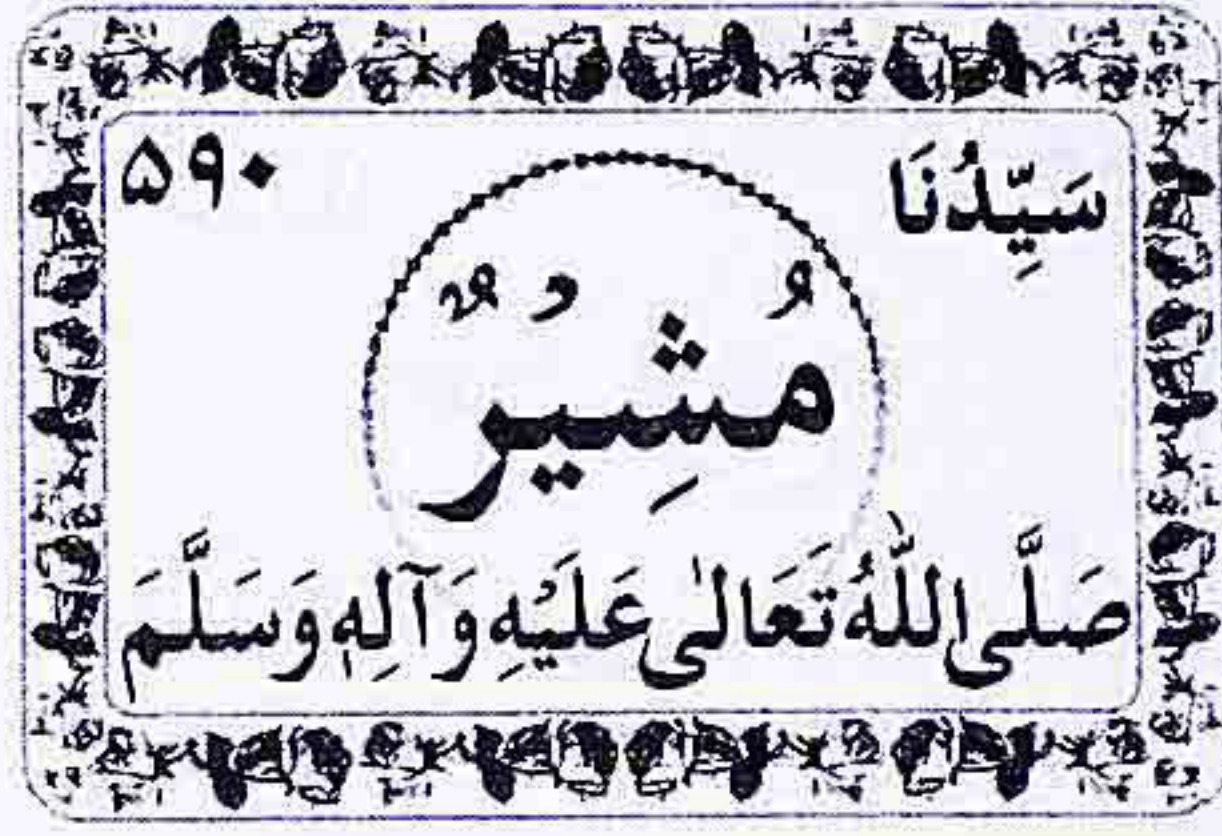 سَيِّدُنَا ۵۹۰
مُشِيْرٌ
صَلَّى اللّٰهُ تَعَالٰى عَلَيْهِ وَآلِهٖ وَسَلَّمَ